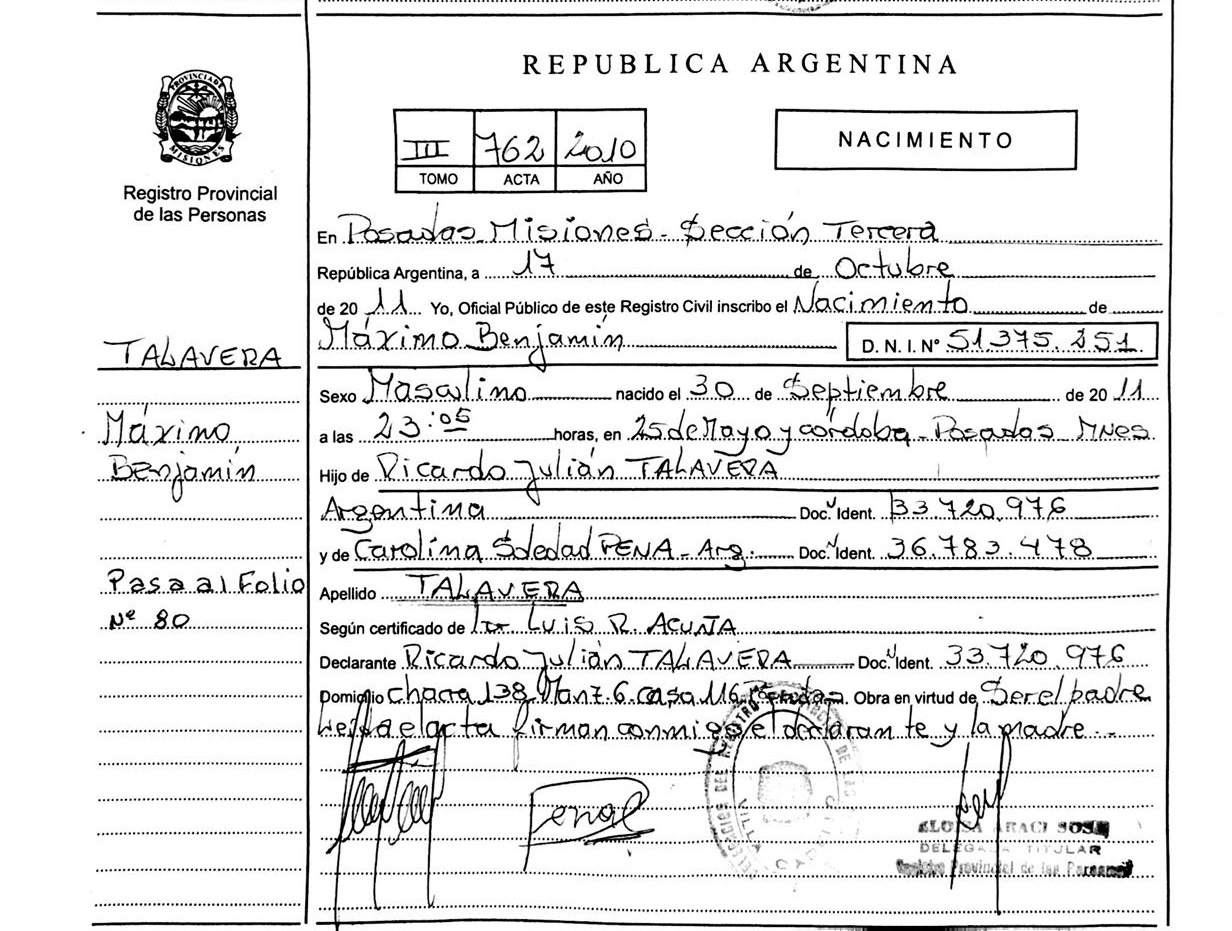 REPUBLICA ARGENTINA
PROVINCIA DE
MISIONES
Registro Provincial
de las Personas
III 762 2010
TOMO ACTA AÑO
NACIMIENTO
En Posadas Misiones - Sección Tercera
República Argentina, a 17 de Octubre
de 20 11 Yo, Oficial Público de este Registro Civil inscribo el Nacimiento de
Máximo Benjamín D. N. I. Nº 51.375.251
TALAVERA
Sexo Masculino nacido el 30 de Septiembre de 20 11
Máximo
a las 23:05 horas, en 25 de Mayo y córdoba - Posadas Mnes
Benjamín
Hijo de Ricardo Julián TALAVERA
Argentina Doc. Ident. 33.720.976
y de Carolina Soledad PENA - Arg. Doc. Ident. 36.783.478
Pasa al Folio
Nº 80
Apellido TALAVERA
Según certificado de Dr. Luis R. ACUÑA
Declarante Ricardo Julián TALAVERA Doc. Ident. 33.720.976
Domicilio chacra 138 Manz. 6 casa 116 Posadas Obra en virtud de Ser el padre
Leída el acta firman conmigo el declarante y la madre
DELEGADA TITULAR
Registro Provincial de las Personas